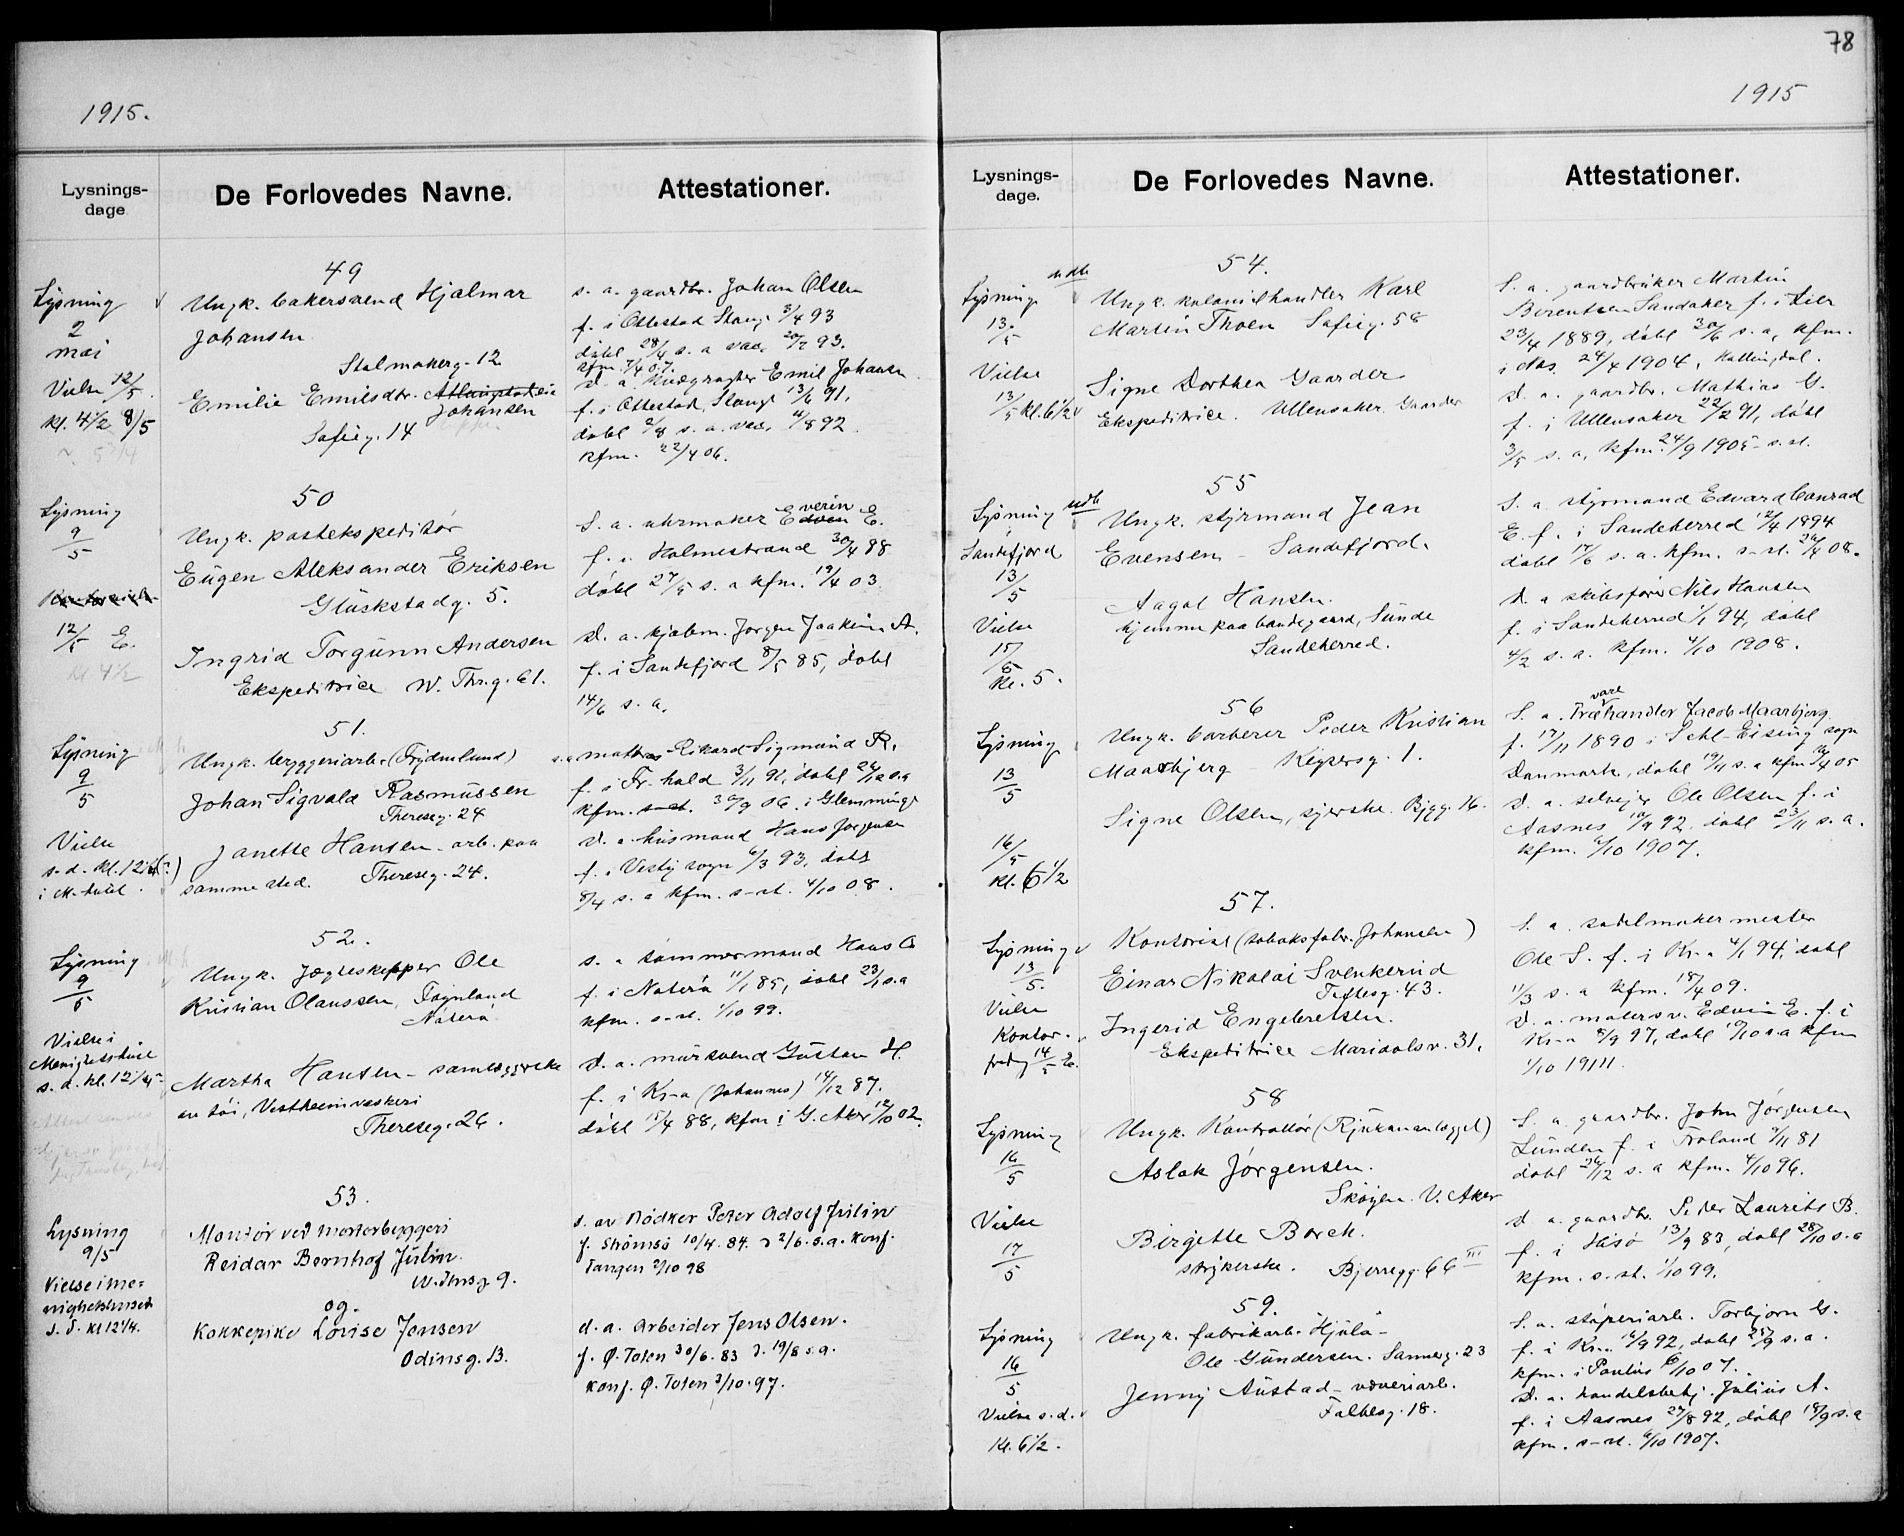 78
1915.
Lysnings-
dage
De Forlovedes Navne.
Attestationer.
49
Lysning
2
mai
Vielse 12/5
kl. 4 1/2 8/5
Ungk. bakersvend Hjalmar
Johansen
Stolmakerg. 12
Emilie Emilsdtr.
Johansen
Sofieg. 14
s. a. gaardbr. Johan Olsen
f. i Ottestad Stange 3/4 93
døbt 28/4 s. a vac. 20/7 93.
kfm. 7/4 07.
D. a. Emil Johansen
f. i Ottestad, Stange 13/6 91,
døbt 2/8 s. a. vac. 4/8 92
kfm. 22/4 06.
50
Lysning
9
5
12/5 E.
kl 4 1/2
Ungk. postekspeditør
Eugen Aleksander Eriksen
Glückstadg. 5.
Ingrid Torgunn Andersen
Ekspeditrice W. Thr. g. 61.
S. a. uhrmaker Everin E.
f. i Holmestrand 30/4 88
døbt 27/5 s. a kfm. 19/4 03.
D. a. kjøbm. Jørgen Joakim A.
f. i Sandefjord 8/5 85, døbt
14/6 s. a.
51.
Lysning
9
5
Vielse
s. d. kl. 12
Ungk. bryggeriarb. (Frydenlund)
Johan Sigvald Rasmussen
Thereseg. 24
Janette Hansen - arb. paa
samme sted. Thereseg. 24.
s. a. Rikard Sigmund R.
f. i Fr.hald 3/11 91, døbt 26/12 s.a
kfm. 30/9 06. i Glemminge
D. a. husmand Hans Jørgensen
f. i Vestby sogn 6/3 93, døbt
8/4 s. a kfm. s-st. 4/10 08.
52.
Lysning
9
5
Vielse i
Menighetshuset
s. d. kl. 12 1/4
Ungk. Jægteskipper Ole
Kristian Olaussen, Føynland
Nøterø
Martha Hansen -
av tøi, Vestheim vaskeri
Thereseg. 26.
S. a tømmermand Hans O
f. i Nøterø 11/1 85, døbt 23/1 s.a
kfm. s-st. 1/10 99.
D. a. mursvend Gustav H.
f. i Kr-a (Johannes) 14/12 87.
døbt 15/4 88, kfm i G. Aker 12/10 02.
53.
Lysning
9/5
Vielse i me-
nighetshuset
s. d. kl 12 1/4.
Montør ved mortorbyggeri
Reidar Bernhof Julin.
W. Thrsg 9.
og.
Kokkepike Lovise Jensen
Odinsg. 13.
s. av Bødker Peter Adolf Julin
f. Strømsø 10/4. 84. d 2/6. s.a. konf.
Tangen 2/10 98
d. a. Arbeider Jens Olsen.
f. Ø. Toten 30/6. 83 d. 19/8 s.a.
konf. Ø. Toten 3/10. 97.
1915
Lysnings-
dage.
De Forlovedes Navne.
Attestationer.
54.
Lysning udb
13
5
Vielse
13/5 kl. 6 1/2
Ungk. kolonialhandler Karl
Martin Thoen Sofieg. 58
Signe Dorthea Gaarder
Ekspeditrice. Ullensaker. Gaarder
S. a. gaardbruker Martin
Berentsen Sandaker f. i Lier
23/4 1889, døbt 30/6 s. a, kfm.
i Nes 24/4 1904, Hallingdal.
D. a. gaardbr. Mathias G.
f. i Ullensaker 22/2 91, døbt
3/5 s. a, kfm. 24/9 1905 s. st.
55
Lysning udb
Sandefjord
13
5
Vielse
15
5
Kl. 5.
Ungk. styrmand Jean
Evensen - Sandefjord.
Aagot Hansen.
hjemme paa, Sunde
Sandeherred.
S. a. styrmand Edvard Conrad
E. f. i Sandeherred 12/4 1894
døbt 17/6 s. a. kfm. s-st. 26/4 08.
D. a skibsfører Nils Hansen
f. i Sandeherred 1/1 94, døbt
4/2 s. a. kfm. 4/10 1908.
56
Lysning
13
5
16/5
kl. 6 1/2
Ungk. barberer Peder Kristian
Maarbjerg - Keysersg. 1.
Signe Olsen, syerske. Bygg. 16.
S. a. Trævarehandler Jacob Maarbjerg
f. 17/11 1890 i Sehl-Eising sogn
Danmark, døbt 19/11 s. a kfm 05
D. a. selveier Ole Olsen f. i
Aasnes 10/9 92, døbt 23/11 s. a.
kfm. 6/10 1907.
57.
Lysning
13/5.
Vielse
Kontor.
fredag 14/5 E.
Kontorist (tobaksfabr. Johansen)
Einar Nikolai Svenkerud
Toftesg. 43.
Ingerid Engebretsen.
Ekspeditrice Maridalsv. 31.
S. a. sadelmakermester
Ole S. f. i Kr-a 4/1 94, døbt
11/3 s. a kfm. 18/4 09.
D. a. malersv. Edvin E. f. i
Kr-a 8/9 97, døbt 10/10 s.a kfm
1/10 1911.
58
Lysning
16
5
Vielse
17
5
Ungk. Kontrollør (Rjukananlægget)
Aslak Jørgensen.
Skøyen. V. Aker
Birgette Borch.
strykerske. Bjerregg. 66 III
S. a. gaardbr. John Jørgensen
Lunden f. i Froland 5/11 81
døbt 26/12 s. a kfm. 4/10 96.
D. a. gaardbr. Peder Laurits B.
f. i Hisø 13/9 83, døbt 28/10 s. a
kfm. s. st. 1/10 99.
59.
Lysning
16
5
Vielse s. d.
Kl. 6 1/2.
Ungk. fabrikarb. Hjula -
Ole Gundersen. Sannerg. 23
Jenny Austad - væveriarb.
Falbesg. 18.
S. a. støperiarb. Torbjørn G.
f. i Kr.a 16/9 92, døbt 25/9 s. a.
kfm. i Paulus 6/10 07.
D. a. handelsbetj. Julius A.
f. i Aasnes 27/8 92, døbt 18/9 s. a
kfm. s-st. 6/10 1907.